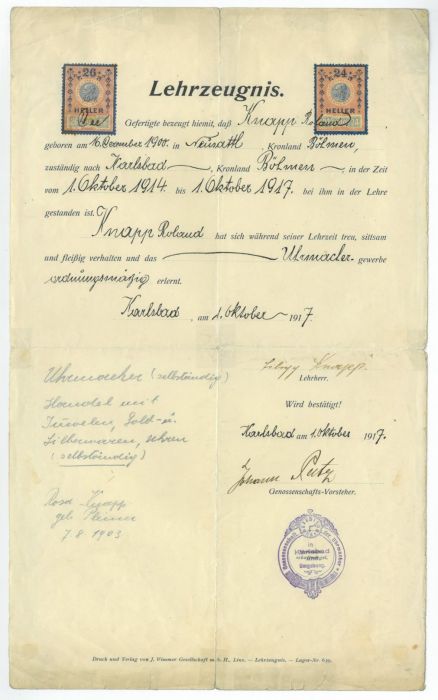 26
HELLER
24
HELLER
Lehrzeugnis.
Der Gefertigte bezeugt hiemit, daß Knapp Roland
geboren am 16. Dezember 1900. in Neusattl, Kronland Böhmen,
zuständig nach Karlsbad, Kronland Böhmen, in der Zeit
vom 1. Oktober 1914. bis 1. Oktober 1917. bei ihm in der Lehre
gestanden ist.
Knapp Roland hat sich während seiner Lehrzeit treu, sittsam
und fleißig verhalten und das Uhrmacher-gewerbe
ordnungsmäßig erlernt.
Karlsbad, am 1. Oktober 1917.
Knapp
Lehrherr.
Wird bestätigt!
Karlsbad am 1. Oktober 1917.
Johann
Genossenschafts-Vorsteher.
Genossenschaft der Uhrmacher
in
Karlsbad
und
Umgebung.
Uhrmacher (selbständig)
Handel mit
Juwelen, Gold- u.
Silberwaren, Uhren
(selbständig)
Rosa Knapp
geb.
7.8.1903
Druck und Verlag von J. Wimmer Gesellschaft m. b. H., Linz. — Lehrzeugnis. — Lager-Nr. 639.